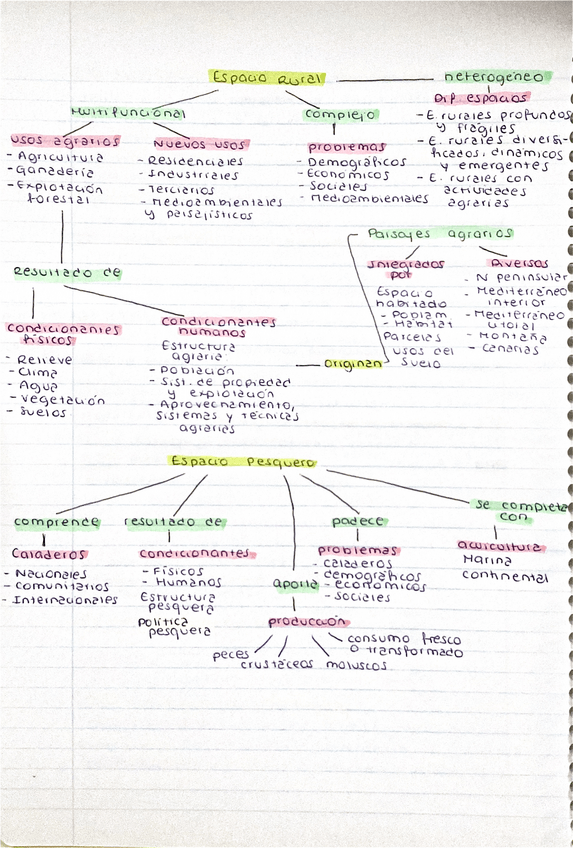 Espacio Rural
heterogéneo
Multifuncional
Complejo
Dif. espacios
- E. rurales profundos
y frágiles
- E. rurales diversi-
ficados, dinámicos
y emergentes
- E. rurales con
actividades
agrarias
usos agrarios
- Agricultura
- Ganadería
- Explotación
forestal
Nuevos usos
- Residenciales
- Industriales
- Terciarios
- Medioambientales
y paisajísticos
problemas
- Demográficos
- Económicos
- Sociales
- Medioambientales
Paisajes agrarios
Integrados
por
Espacio
habitado
- Poblam.
- Hábitat
Parcelas
usos del
suelo
Diversos
- N peninsular
- Mediterráneo
interior
- Mediterráneo
litoral
- Montaña
- Canarias
Resultado de
condicionantes
físicos
- Relieve
- Clima
- Agua
- Vegetación
- Suelos
condicionantes
humanos
Estructura
agraria
- Población
- Sist. de propiedad
y explotación
- Aprovechamiento,
sistemas y técnicas
agrarias
Originan
Espacio Pesquero
comprende
resultado de
padece
se completa
con
Caladeros
- Nacionales
- Comunitarios
- Internacionales
condicionantes
- Físicos
- Humanos
Estructura
pesquera
Política
pesquera
aporta
problemas
- caladeros
- demográficos
- económicos
- sociales
acuicultura
Marina
continental
producción
peces
crustáceos
moluscos
consumo fresco
o transformado